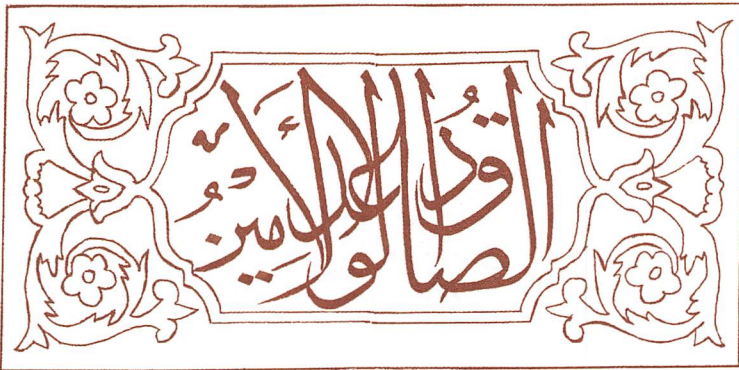 الصادقُ الوعد الأمينُ